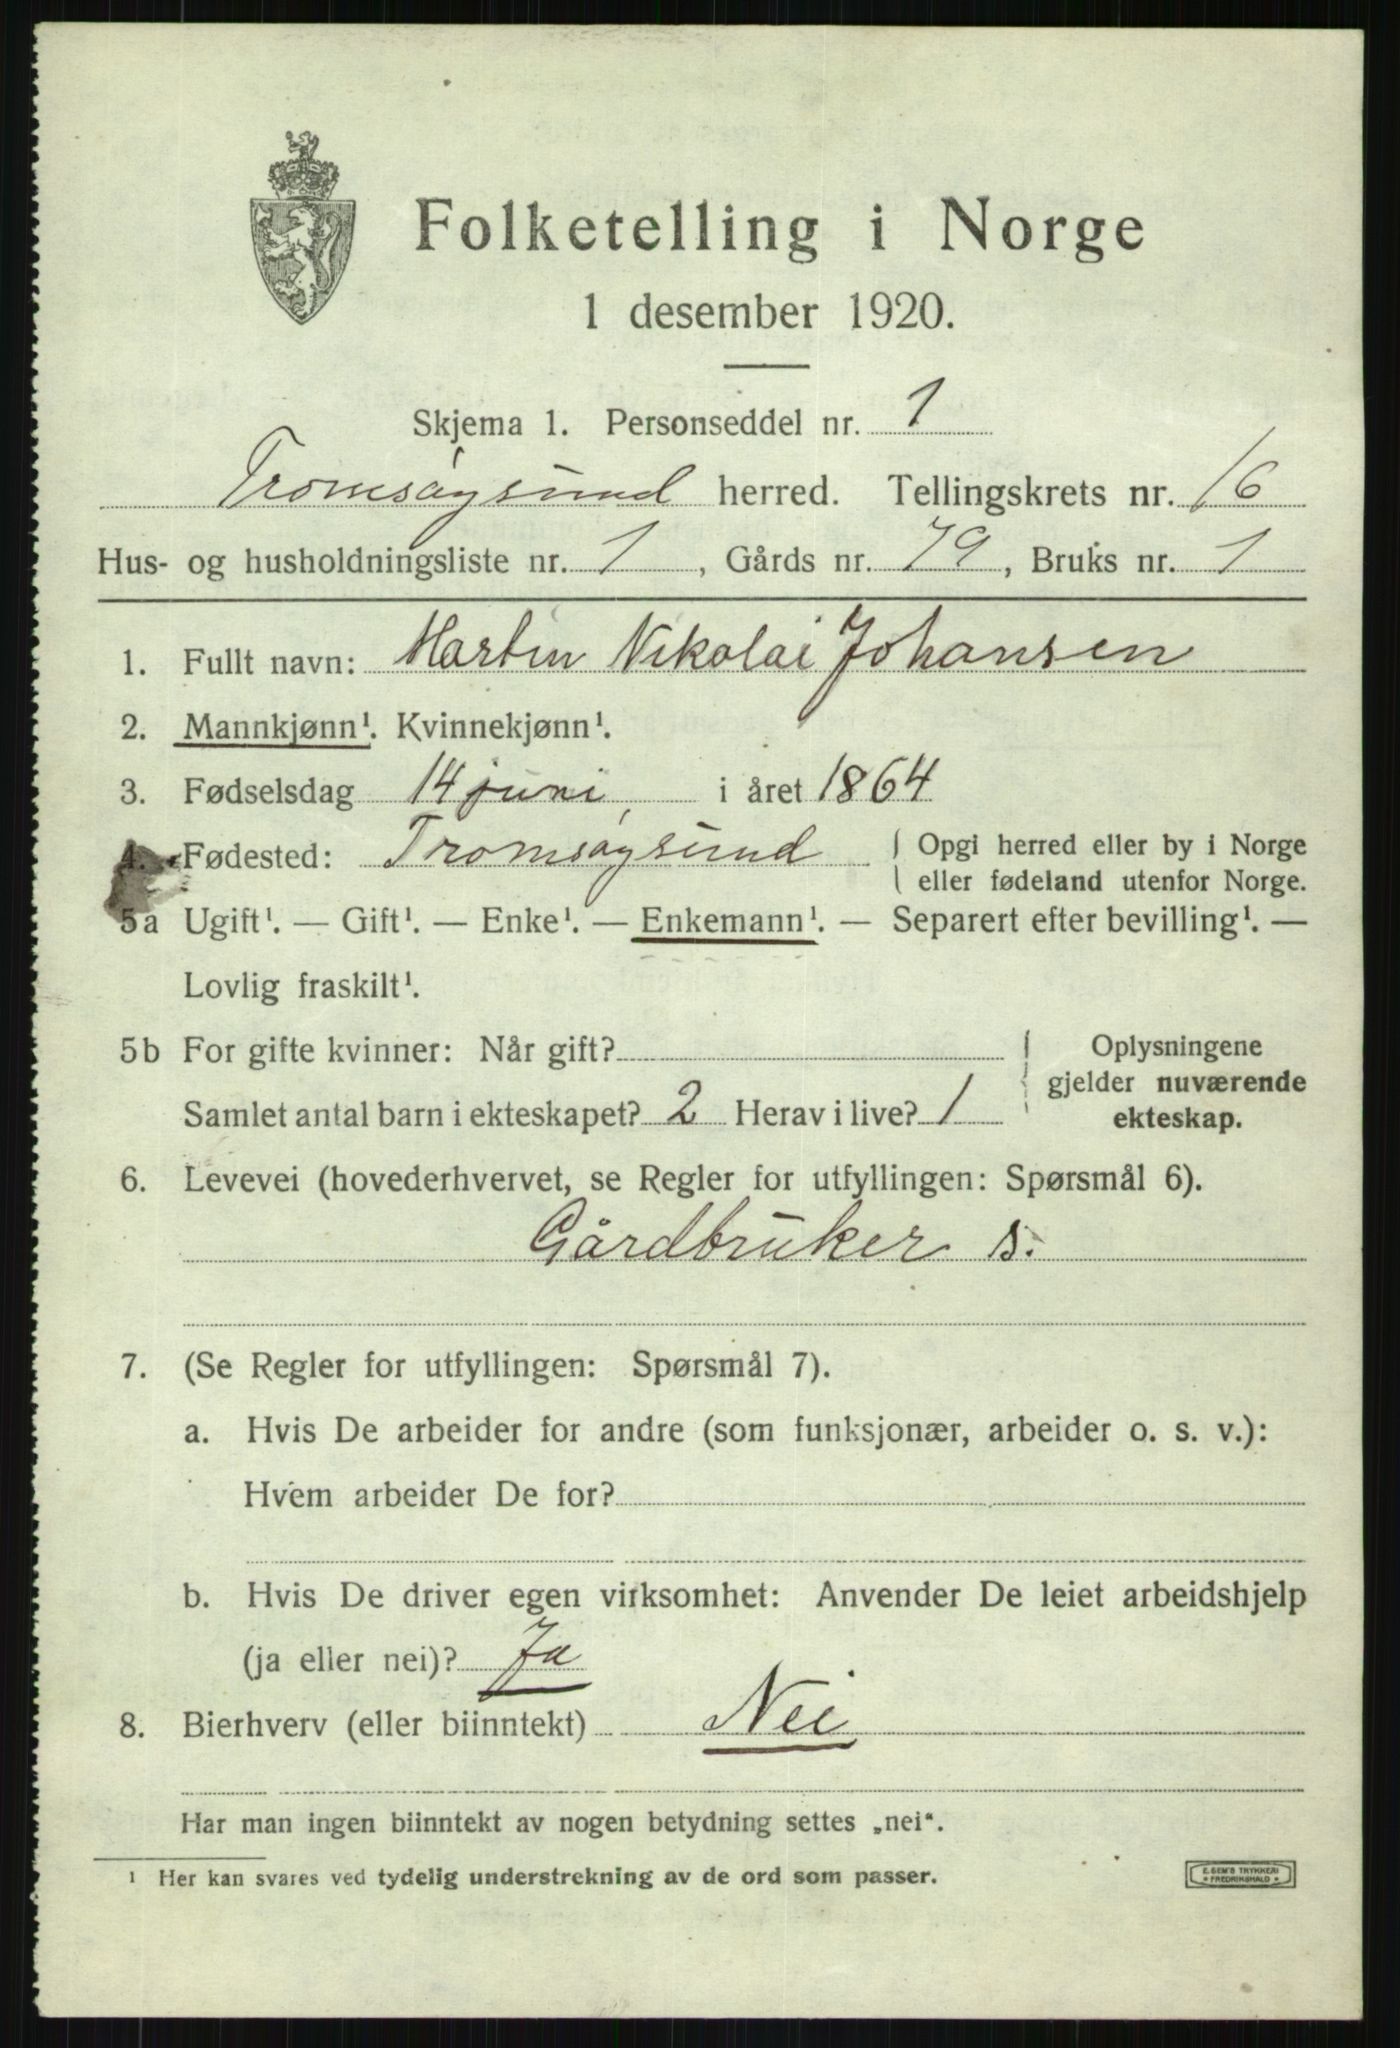 Folketelling i Norge
1 desember 1920.
Skjema 1. Personseddel nr. 1
Tromsøysund herred. Tellingskrets nr. 16
Hus- og husholdningsliste nr. 1, Gårds nr. 79, Bruks nr. 1
1. Fullt navn: Martin Nikolai Johansen
2. Mannkjønn¹. Kvinnekjønn¹.
3. Fødselsdag 14 juni, i året 1864
4. Fødested: Tromsøysund Opgi herred eller by i Norge
eller fødeland utenfor Norge.
5a Ugift¹. — Gift¹. — Enke¹. — Enkemann¹. — Separert efter bevilling¹. —
Lovlig fraskilt¹.
5b For gifte kvinner: Når gift? Oplysningene
gjelder nuværende
Samlet antal barn i ekteskapet? 2 Herav i live? 1 ekteskap.
6. Levevei (hovederhvervet, se Regler for utfyllingen: Spørsmål 6).
Gårdbruker s.
7. (Se Regler for utfyllingen: Spørsmål 7).
a. Hvis De arbeider for andre (som funksjonær, arbeider o. s. v.):
Hvem arbeider De for?
b. Hvis De driver egen virksomhet: Anvender De leiet arbeidshjelp
(ja eller nei)? Ja
8. Bierhverv (eller biinntekt) Nei
Har man ingen biinntekt av nogen betydning settes „nei“.
¹ Her kan svares ved tydelig understrekning av de ord som passer.
E. SEM'S TRYKKERI
• FREDRIKSHALD •